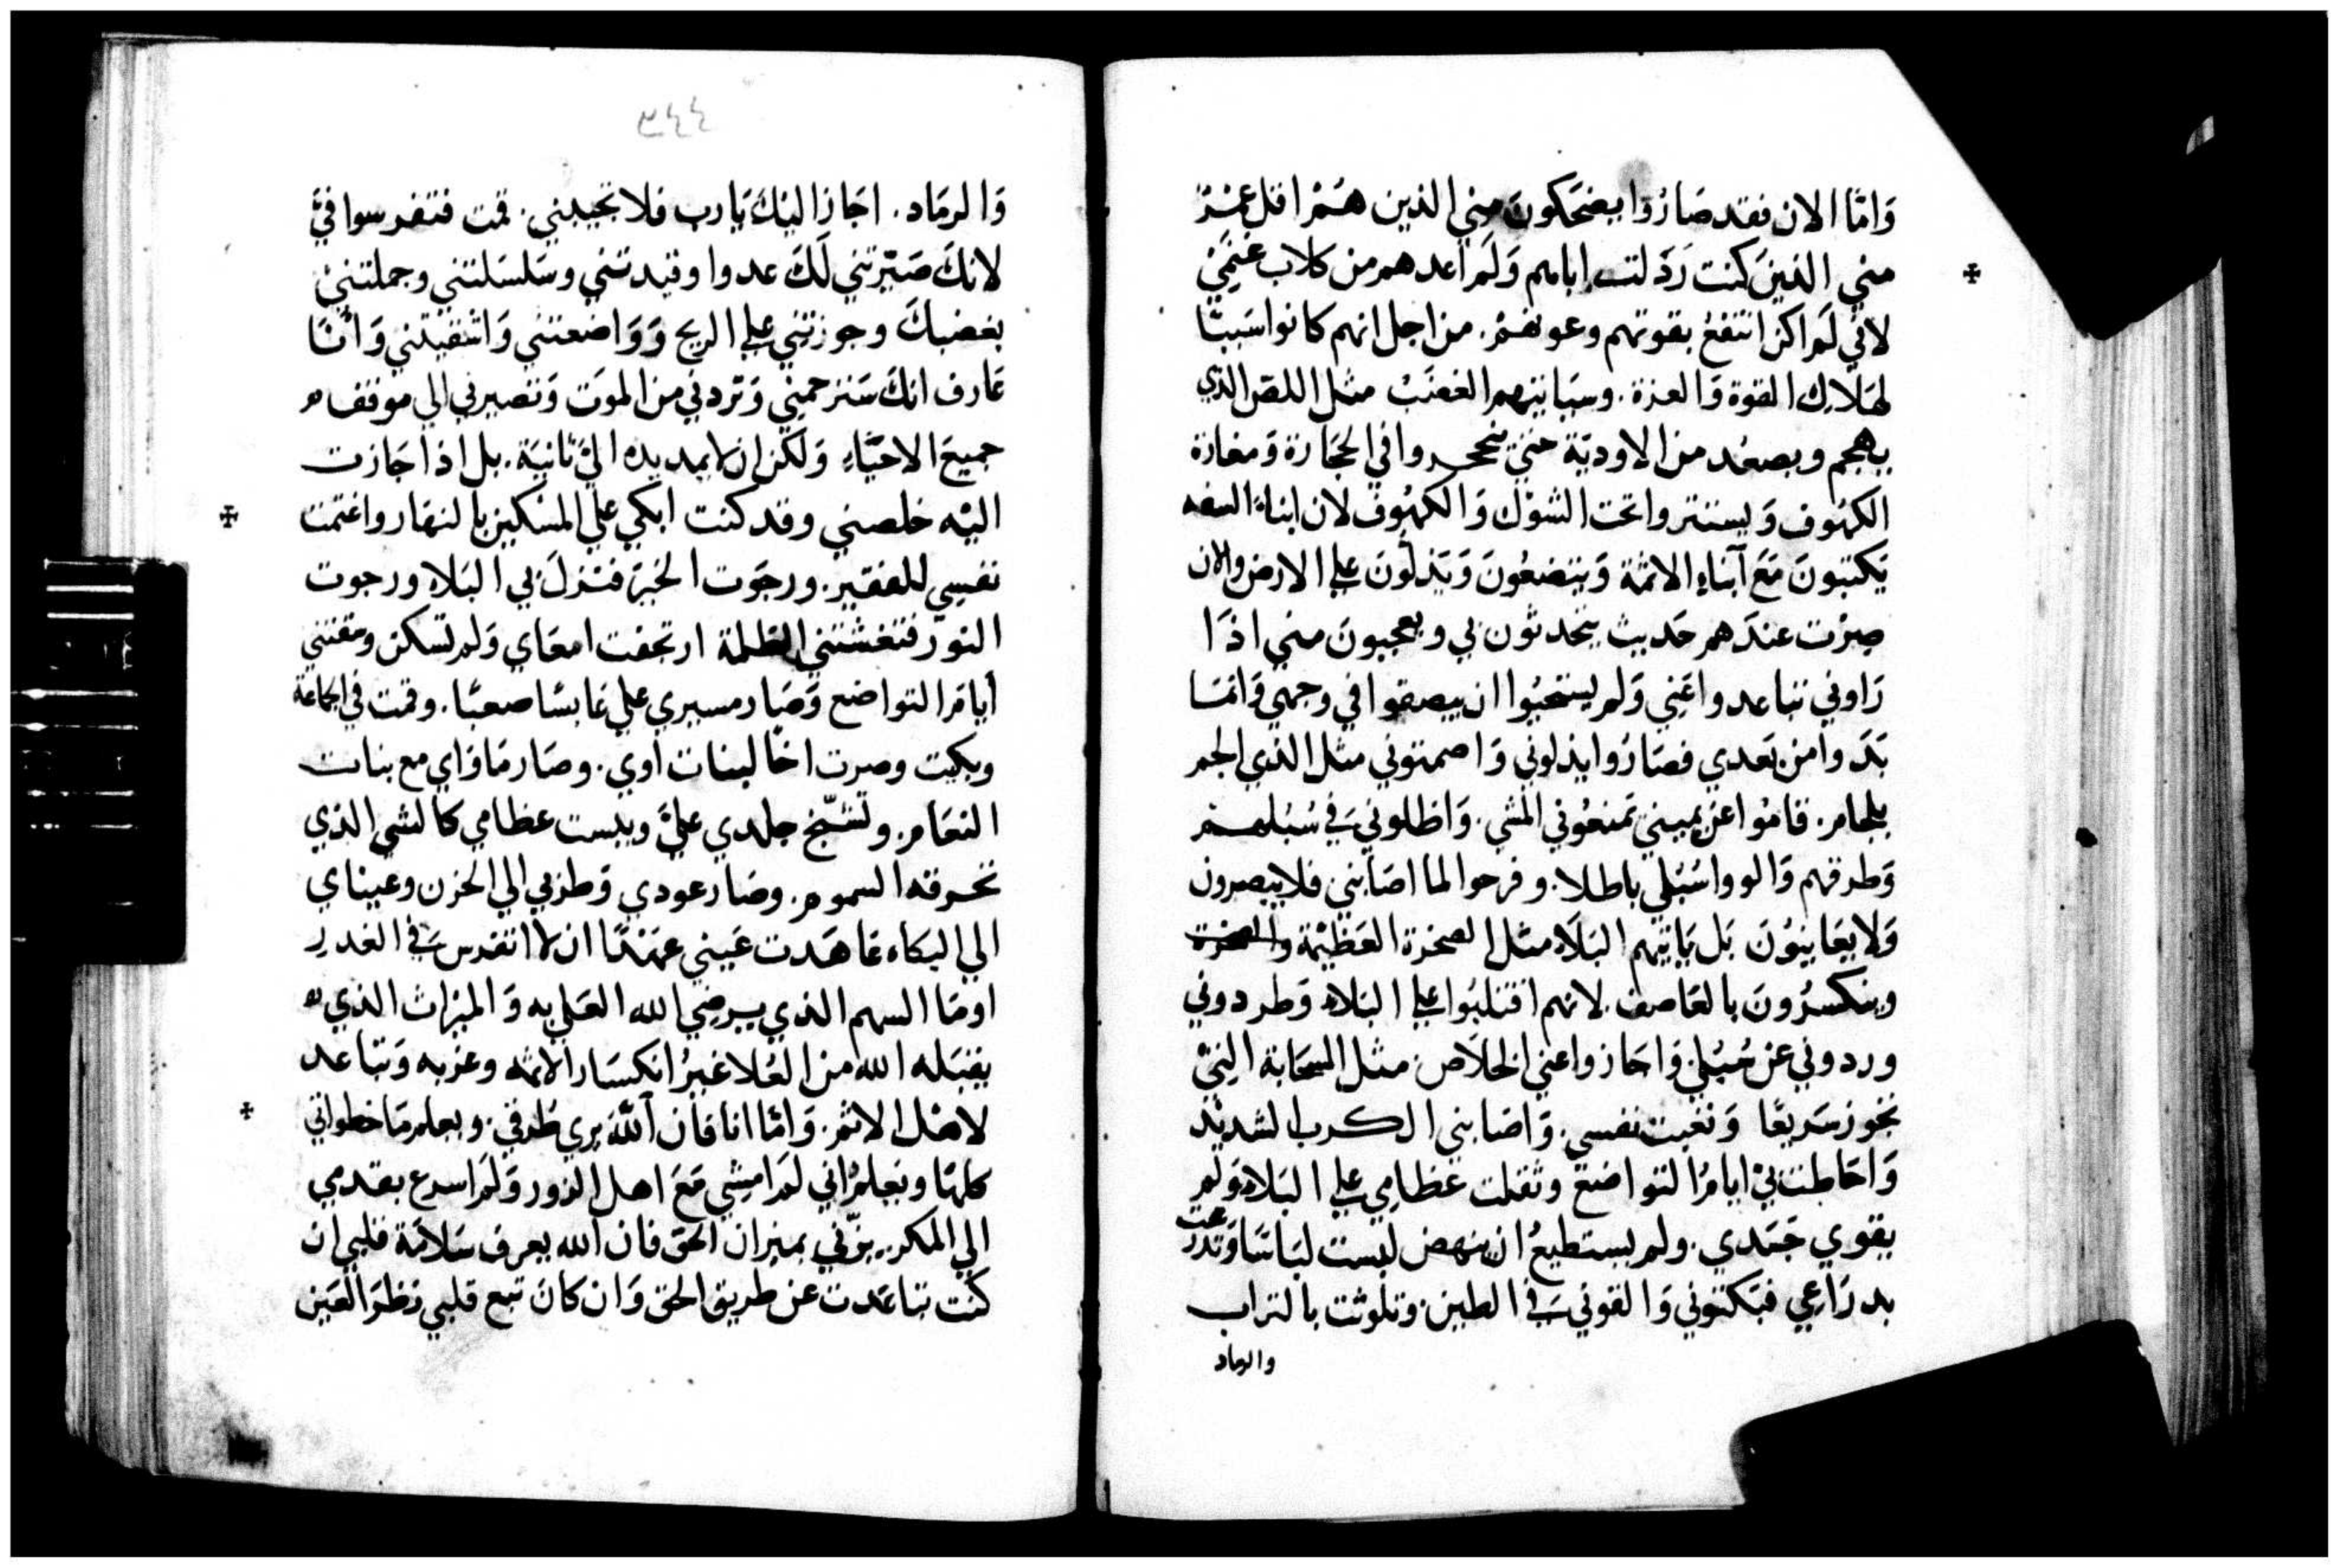 وَامَّا الان فقد صَارُوا يضحَكونَ مني الذين هُمْ اقل عمْرٌ
مني الذينَ كنت رَذَلت اباهم وَلَم اعدهم من كلاب غنمِيْ
لاني لَم اكن انتفعُ بقوتهم وعونهُمْ. من اجل انهم كانوا سَببًا
لهَلَاك القوة وَالعزة. وسَياتيهم الغضَبْ مثل اللصّ الذي
يهجم ويصعَد من الاوديَة حتيَ فِي الحجَارة وَمغارة
الكهُوف وَيستتروا تحت الشوْك وَالكهُوف لان ابناءَ السفه
يَكتبونَ مَعَ آبنَاءِ الاثمَة وَيتضعُونَ وَيَذلّونَ علي الارض والان
صِرْت عندَهم حَديث يتحَدثون بي ويعجبونَ مني اذَا
رَاوني تباعدوا عَني وَلم يستحيُوا ان يبصقوا في وجهي وَانمَا
بَدَوا من بَعدي فصَارُوا يذلوني وَاصمتوني مثل الذي الجم
بلجام. قامُوا عَن يميني تمنعُوني المشي. وَاظلوني فَي سُبُلهم
وَطرقهم وَالووا سُبُلي باطلا. وفرحوا لما اصَابني فلا يبصرون
وَلا يعَاينوُنَ بَل يَاتيهم البَلَاء مثل الصخرة العَظيْمة والصخرة
وينكسرُونَ بالعَاصف. لانهم اقتلبُوا علي البَلاء وَطردوني
وردوني عن سُبُلي وَاجَازوا عني الخلَاص مثل السحَابة التيْ
تجوز سَريعًا وَتعبت نفسي. وَاصَابني الكرب الشديْد
وَاحَاطت بيْ ايامُ التواضعْ وثقلت عَظامي علي البَلاء وَلم
يقوي جَسَدي. ولم يستطيعُ ان ينهض لبست لبَاسًا وَتدرعت
بدرَاعي فبَكتوني وَالقوني فَي الطين. وتلوثت بالتراب
والرماد
٣٤٤
وَالرمَاد. اجَاز اليْكَ يَا رب فلا تجيبني. قمت فتفرسوا فيَّ
لانكَ صَيّرتني لَكَ عدوا وقيدتني وسَلسَلتني وجملتنيْ
بغضبكَ وجوزتني علي الريح وَوَاضعتني وَاشقيتني وَانَا
عَارف انكَ سَتزحمني وَتردني من الموَت وَتصيرني الي موقف
جميعَ الاحيَّاءِ وَلكن ان لا يمد يده اليَّ ثانيَة. بل اذا جَازت
اليْه خلصني وقد كنت ابكي علي المسْكين بالنهَار واغتمت
نفسِي للفقير. ورجَوت الخيْر فنزلَ بي البَلاء ورجوت
النوَر فتغشتني الظلمة ارتجفت امعَاي وَلم تسكن ومقتني
أيام التواضع وَصَار مسيري علي عَابسًا صعبًا. وقمت في الجماعَة
وبكيت وصرت اخًا لبنات اوي. وصَار مَاوَاي مع بنات
النعَام. وتشيّخ جلدي عليَّ ويبست عظامي كالشي الذي
تحرقه السموم. وصَار عودي وَطربي الي الحزن وعيناي
الي البكاء عَاهَدت عَيني عهْدًا ان لا اتفرس فَي الغدر
اومَا السهم الذي يرضِي الله العَلي به وَالميْراث الذي
يقبَله الله من العُلا غيرُ انكسَار الاثمه وعزبه وَتباعد
لاهْل الاثم. وَامَّا انا فان اَللّه يري طُرقي. ويعلم مَا خطواتي
كلهَا ويَعلمُ اني لَم امشِي مَعَ اهل الزور وَلَم اسرع بقدمي
الي المكر. يزّني بميزان الحق فان اَلله يعرف سَلامَة قلبي ان
كنت تباعَدت عن طريق الحق وَان كانَ تبع قلبي نظرَ العَين